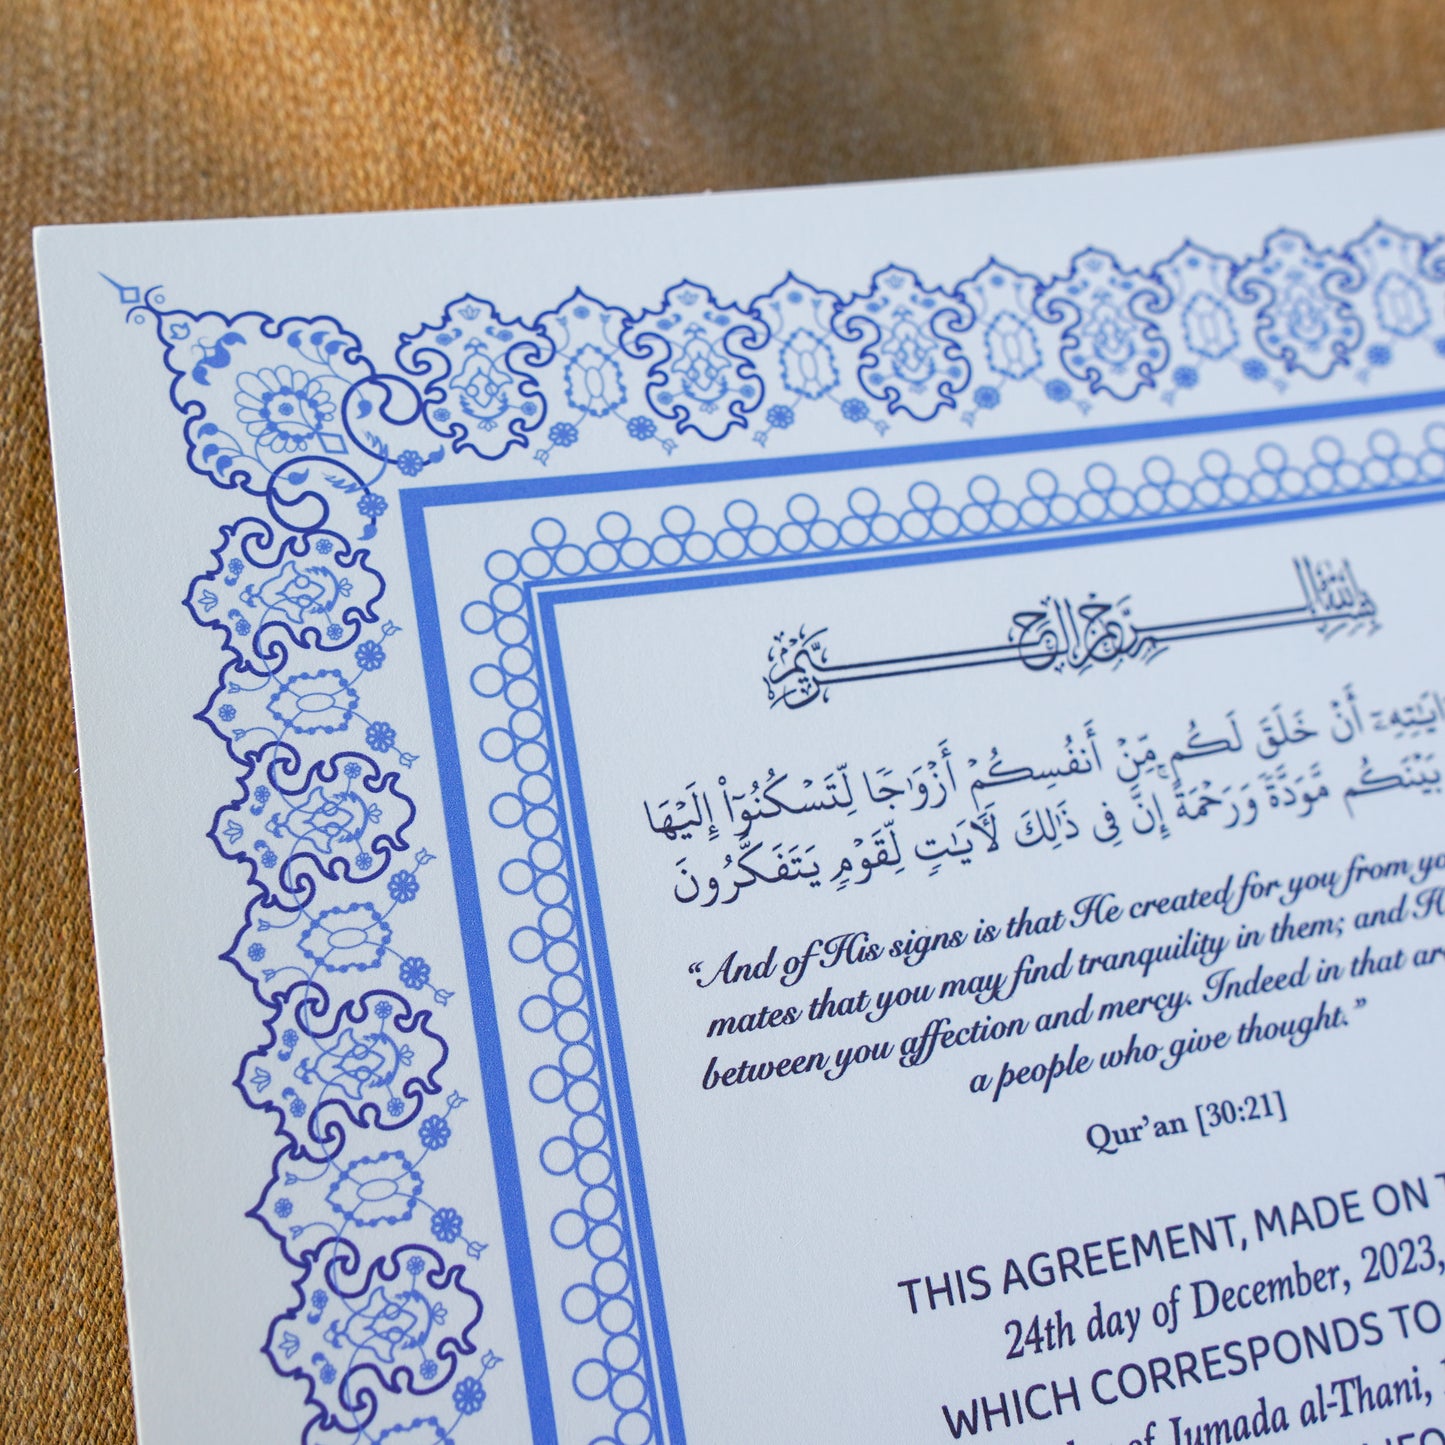 بسم الله الرحمن الرحيم
ءَايَٰتِهِۦٓ أَنْ خَلَقَ لَكُم مِّنْ أَنفُسِكُمْ أَزْوَٰجًا لِّتَسْكُنُوٓا۟ إِلَيْهَا
بَيْنَكُم مَّوَدَّةً وَرَحْمَةً ۚ إِنَّ فِى ذَٰلِكَ لَـَٔايَٰتٍ لِّقَوْمٍ يَتَفَكَّرُونَ
“And of His signs is that He created for you from
mates that you may find tranquility in them; and
between you affection and mercy. Indeed in that
a people who give thought.”
Qur’an [30:21]
THIS AGREEMENT, MADE ON
24th day of December, 2023,
WHICH CORRESPONDS TO
of Jumada al-Thani,